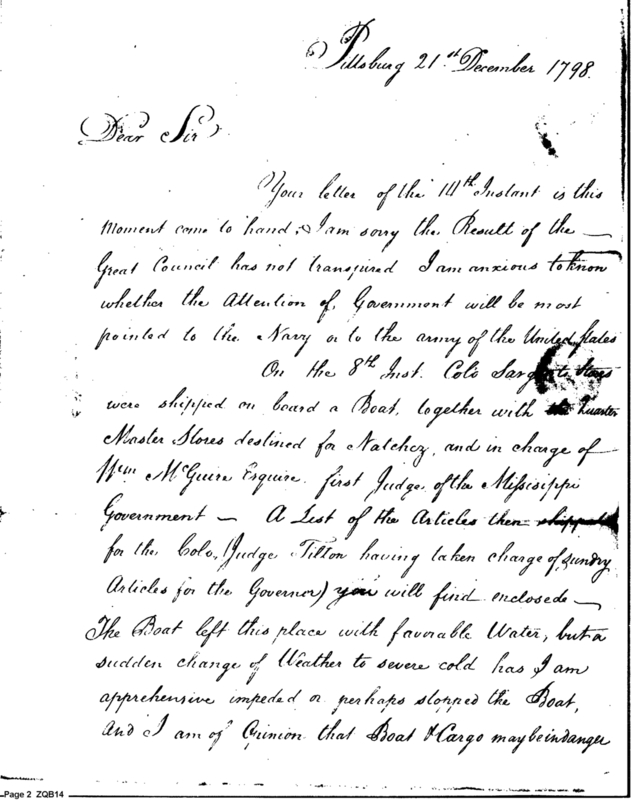 Pittsburg 21st December 1798.
Dear Sir
Your letter of the 14th Instant is this
Moment came to hand; I am sorry the Result of the
Great Council has not transpired I am anxious to know
whether the Attention of Government will be most
pointed to the Navy or to the army of the United States
On the 8th Inst. Colo Sargents Stores
were shipped on board a Boat, together with Quarter
Master Stores destined for Natchez, and in charge of
Wm McGuire Esquire first Judge of the Missisippi
Government — A List of the Articles then shipped
for the Colo, (Judge Tilton having taken charge of sundry
Articles for the Governor) you will find enclosed —
The Boat left this place with favorable Water, but a
sudden change of Weather to severe cold has I am
apprehensive impeded or perhaps stopped the Boat,
And I am of Opinion that Boat & Cargo may be in danger
Page 2 ZQB14